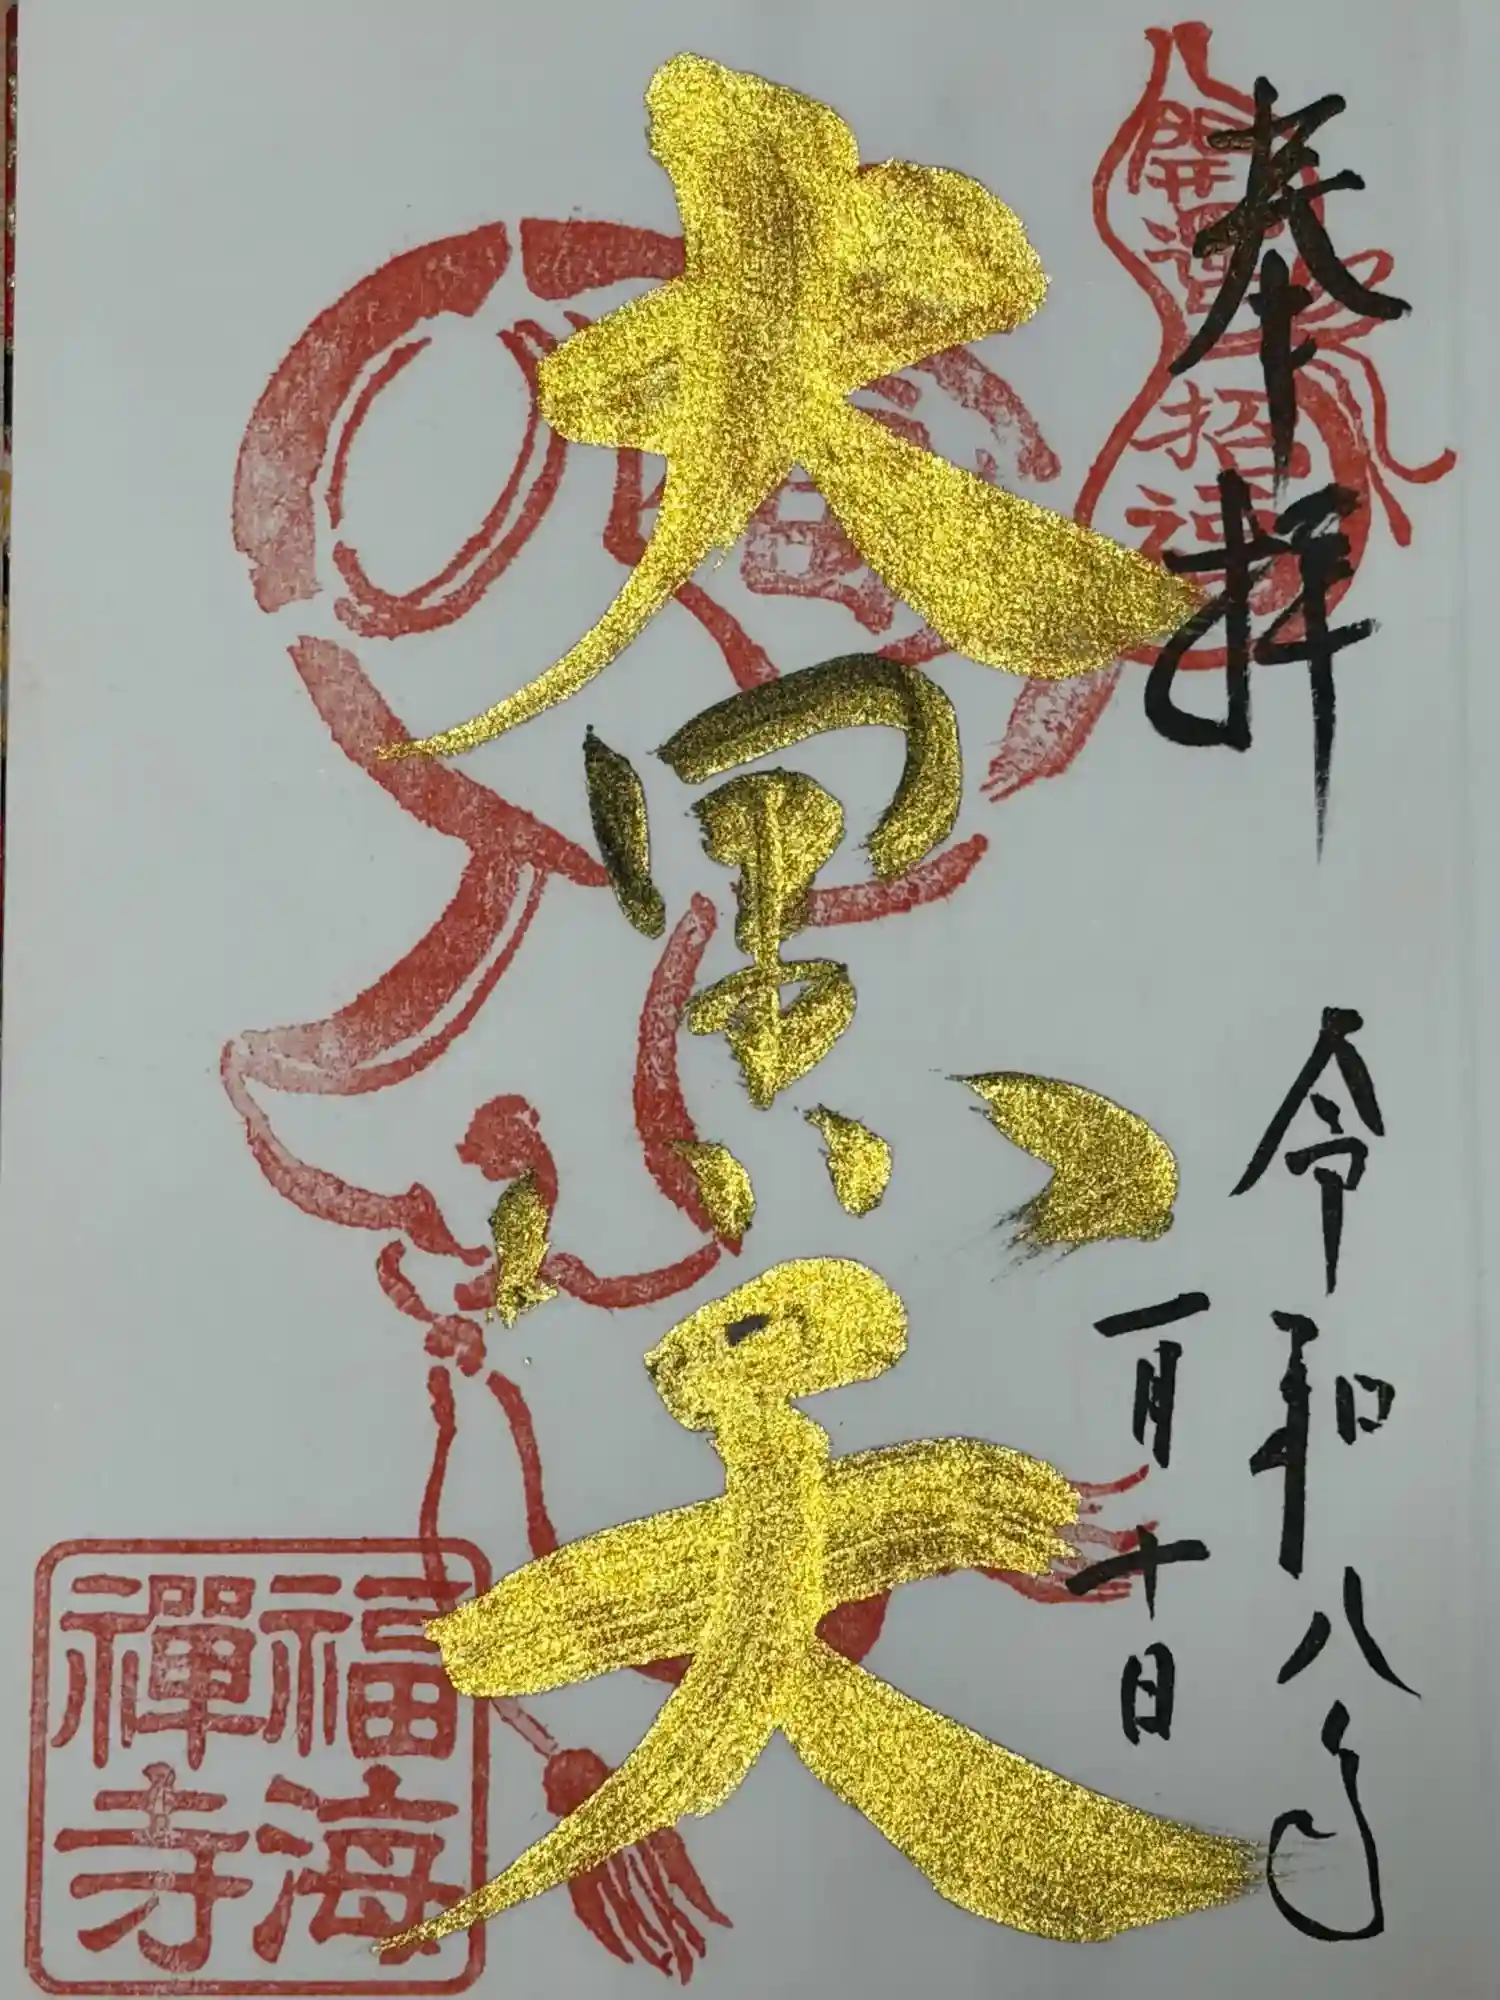 奉拝
開運
招福
令和八年
一月十日
大黒天
福海
禅寺